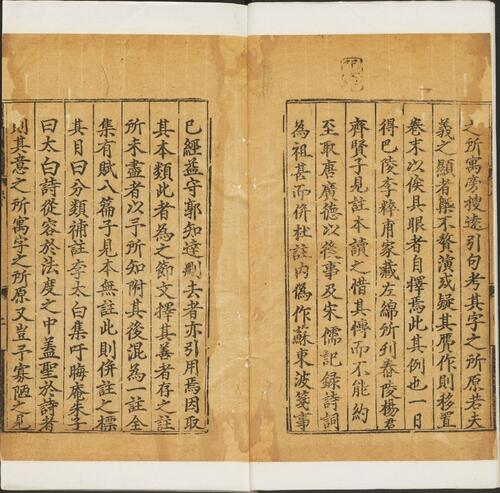 之所寓旁搜遠引句考其字之所原若夫
義之顯者槩不贅演或疑其贋作則移置
卷末以俟具眼者自擇焉此其例也一日
得巴陵李粹甫家藏左綿所刊舂陵楊君
齊賢子見註本讀之惜其愽而不能約
至取唐廣德以後事及宋儒記録詩詞
為祖甚而併杜註内偽作蘇東波箋事
已經益守郭知達刪去者亦引用焉因取
其本類此者為之節文擇其善者存之註
所未盡者以予所知附其後混為一註全
集有賦八篇子見本無註此則併註之標
其目曰分類補註李太白集吁晦庵朱子
曰太白詩從容於法度之中盖聖於詩者
則其意之所寓字之所原又豈予寡陋之見